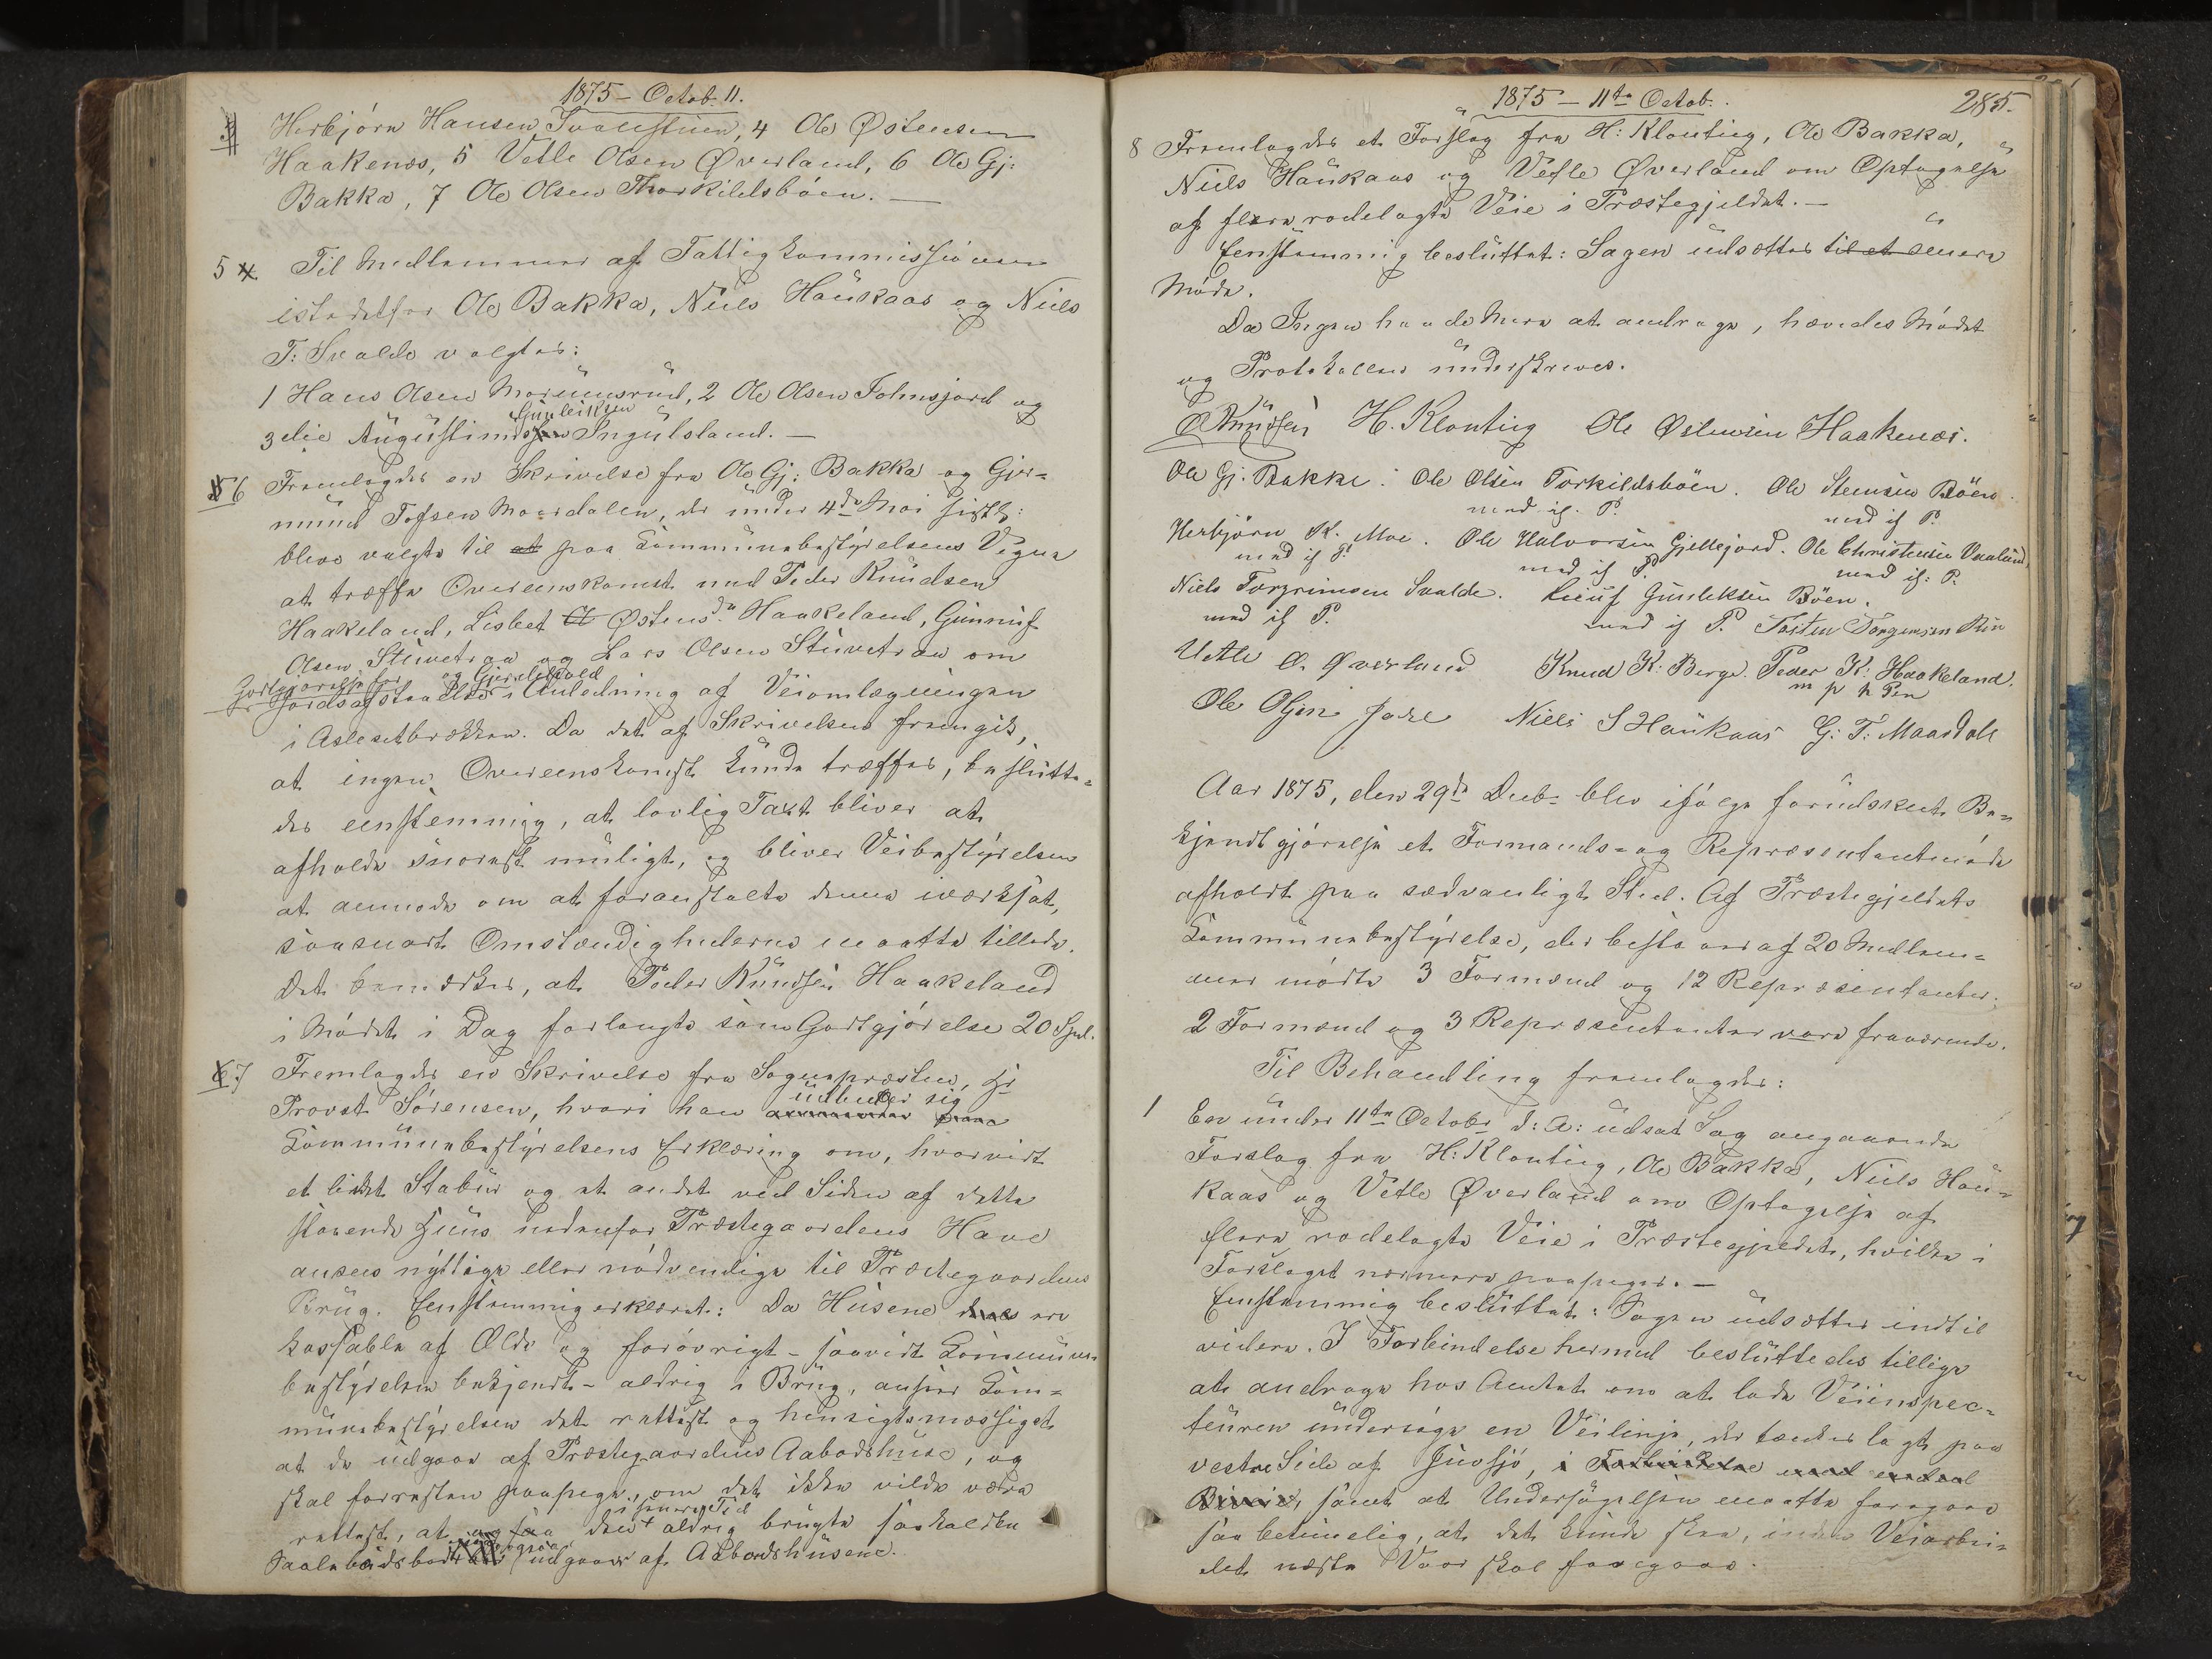 1875 - Octob. 11.
Herbjörn Hansen Svalestuen, 4 Ole Østensen
Haakenæs, 5 Vetle Olsen Øverland, 6 Ole Gj:
Bakka, 7 Ole Olsen Thorkildsböen. —
5 Til Medlemmer af Fattigkommissionen
istedetfor Ole Bakka, Niels Haukaas og Niels
T: Svalde valgtes:
1 Hans Olsen Marumsrud, 2 Ole Olsen Johnsjord og
Gunleiksen
3 die Augustinussen Ingulsland. —
6 Fremlagdes en Skrivelse fra Ole Gj: Bakka og Gjer-
mund Tofsen Maardalen, der under 4de Mai sidstl:
bleve valgte til at paa Kommunebestyrelsens Vegne
at træffe Overeenskomst med Peder Knudsen
Haakeland, Lisbet Østensdr Haakeland, Gunnuf
Olsen Stuvetraa og Lars Olsen Stuvetraa om
Godtgjørelse for og Gjerdehold
Jordsafstaaelse i Anledning af Veiomlægningen
i Aslesetbrækken. Da det af Skrivelsen fremgik,
at ingen Overeenskomst kunde træffes, beslutte-
des eenstemmig, at lovlig Taxt bliver at
afholde snarest muligt, og bliver Veibestyrelsen
at anmode om at foranstalte denne iværksat,
saasnart Omstændighederne maatte tillade.
Det bemærkes, at Peder Knudsen Haakeland
i Mödet i Dag forlangte som Godtgjörelse 20 Spd.
7 Fremlagdes en Skrivelse fra Sognepræsten, Hr
udbeder sig
Provst Sörensen, hvori han
Kommunebestyrelsens Erklæring om, hvorvidt
et lidet Stabur og et andet ved Siden af dette
staaende Huus nedenfor Præstegaardens Have
ansees nyttige eller nödvendige til Præstegaardens
Brug. Eenstemmig erklæret: Da Husene ere
kassable af Ælde og forövrigt - saavidt Kommune-
bestyrelsen bekjendt - aldrig i Brug, anseer Kom-
munebestyrelsen det rettest og hensigtsmæssigst
at de udgaar af Præstegaardens Aabodshuse, og
skal forresten paapege, om det ikke vilde være
i senere Tid
rettest, at ogsaa den aldrig brugte saakaldte
Saalebeidsbod udgaaer af Aabodshusene.
1875 — 11te Octob.
285.
8 Fremlagdes et Forslag fra H: Klonting, Ole Bakka,
Niels Haukaas og Vetle Øverland om Optagelse
af flere rodelagte Veie i Præstegjeldet. —
Eenstemmig besluttet: Sagen udsættes til et senere
Möde.
Da Ingen havde Mere at andrage, hævedes Mödet
og Protokollen underskreves.
Ø Knudsen H. Klonting Ole Østensen Haakenæs.
Ole Gj: Bakke. Ole Olsen Torkildsböen. Ole Steensen Böen.
med if. P. med if P.
Herbjörn K. Moe. Ole Halvorsen Gjellejord. Ole Christensen Vaaland.
med if P. med if P. med if: P.
Niels Torgrimsen Svalde. Lieuf Gunleksen Böen.
med if P. med if P. Tosten Torgersen Rue
Vetle O. Øverland Knud K: Berge. Peder K: Haakeland.
m p h Pen
Ole Olsen Niels S Haukaas G: T: Maardale
Aar 1875, den 29de Decb. blev ifölge forudskeet Be-
kjendtgjörelse et Formands- og Repræsentantmöde
afholdt paa sædvanligt Sted. Af Præstegjeldets
Kommunebestyrelse, der bestaaer af 20 Medlem-
mer mödte 3 Formænd og 12 Repræsentanter.
2 Formænd og 3 Repræsentanter vare fraværende.
Til Behandling fremlagdes:
1 En under 11te Octobr d: A: udsat Sag angaaende
Forslag fra H: Klonting, Ole Bakka, Niels Hau-
kaas og Vetle Øverland om Optagelse af
flere rodelagte Veie i Præstegjeldet, hvilke i
Forslaget nærmere paapeges. —
Eenstemmig besluttet: Sagen udsættes indtil
videre. I Forbindelse hermed besluttedes tillige
at andrage hos Amtet om at lade Veiinspec-
teuren undersöge en Veilinje, der tænkes lagt paa
vestre Side af Juvsjö, i Forbindelse med
samt at Undersögelsen maatte foregaae
saa betimelig, at det kunde skee, inden Veiarbei-
det næste Vaar skal foregaae.